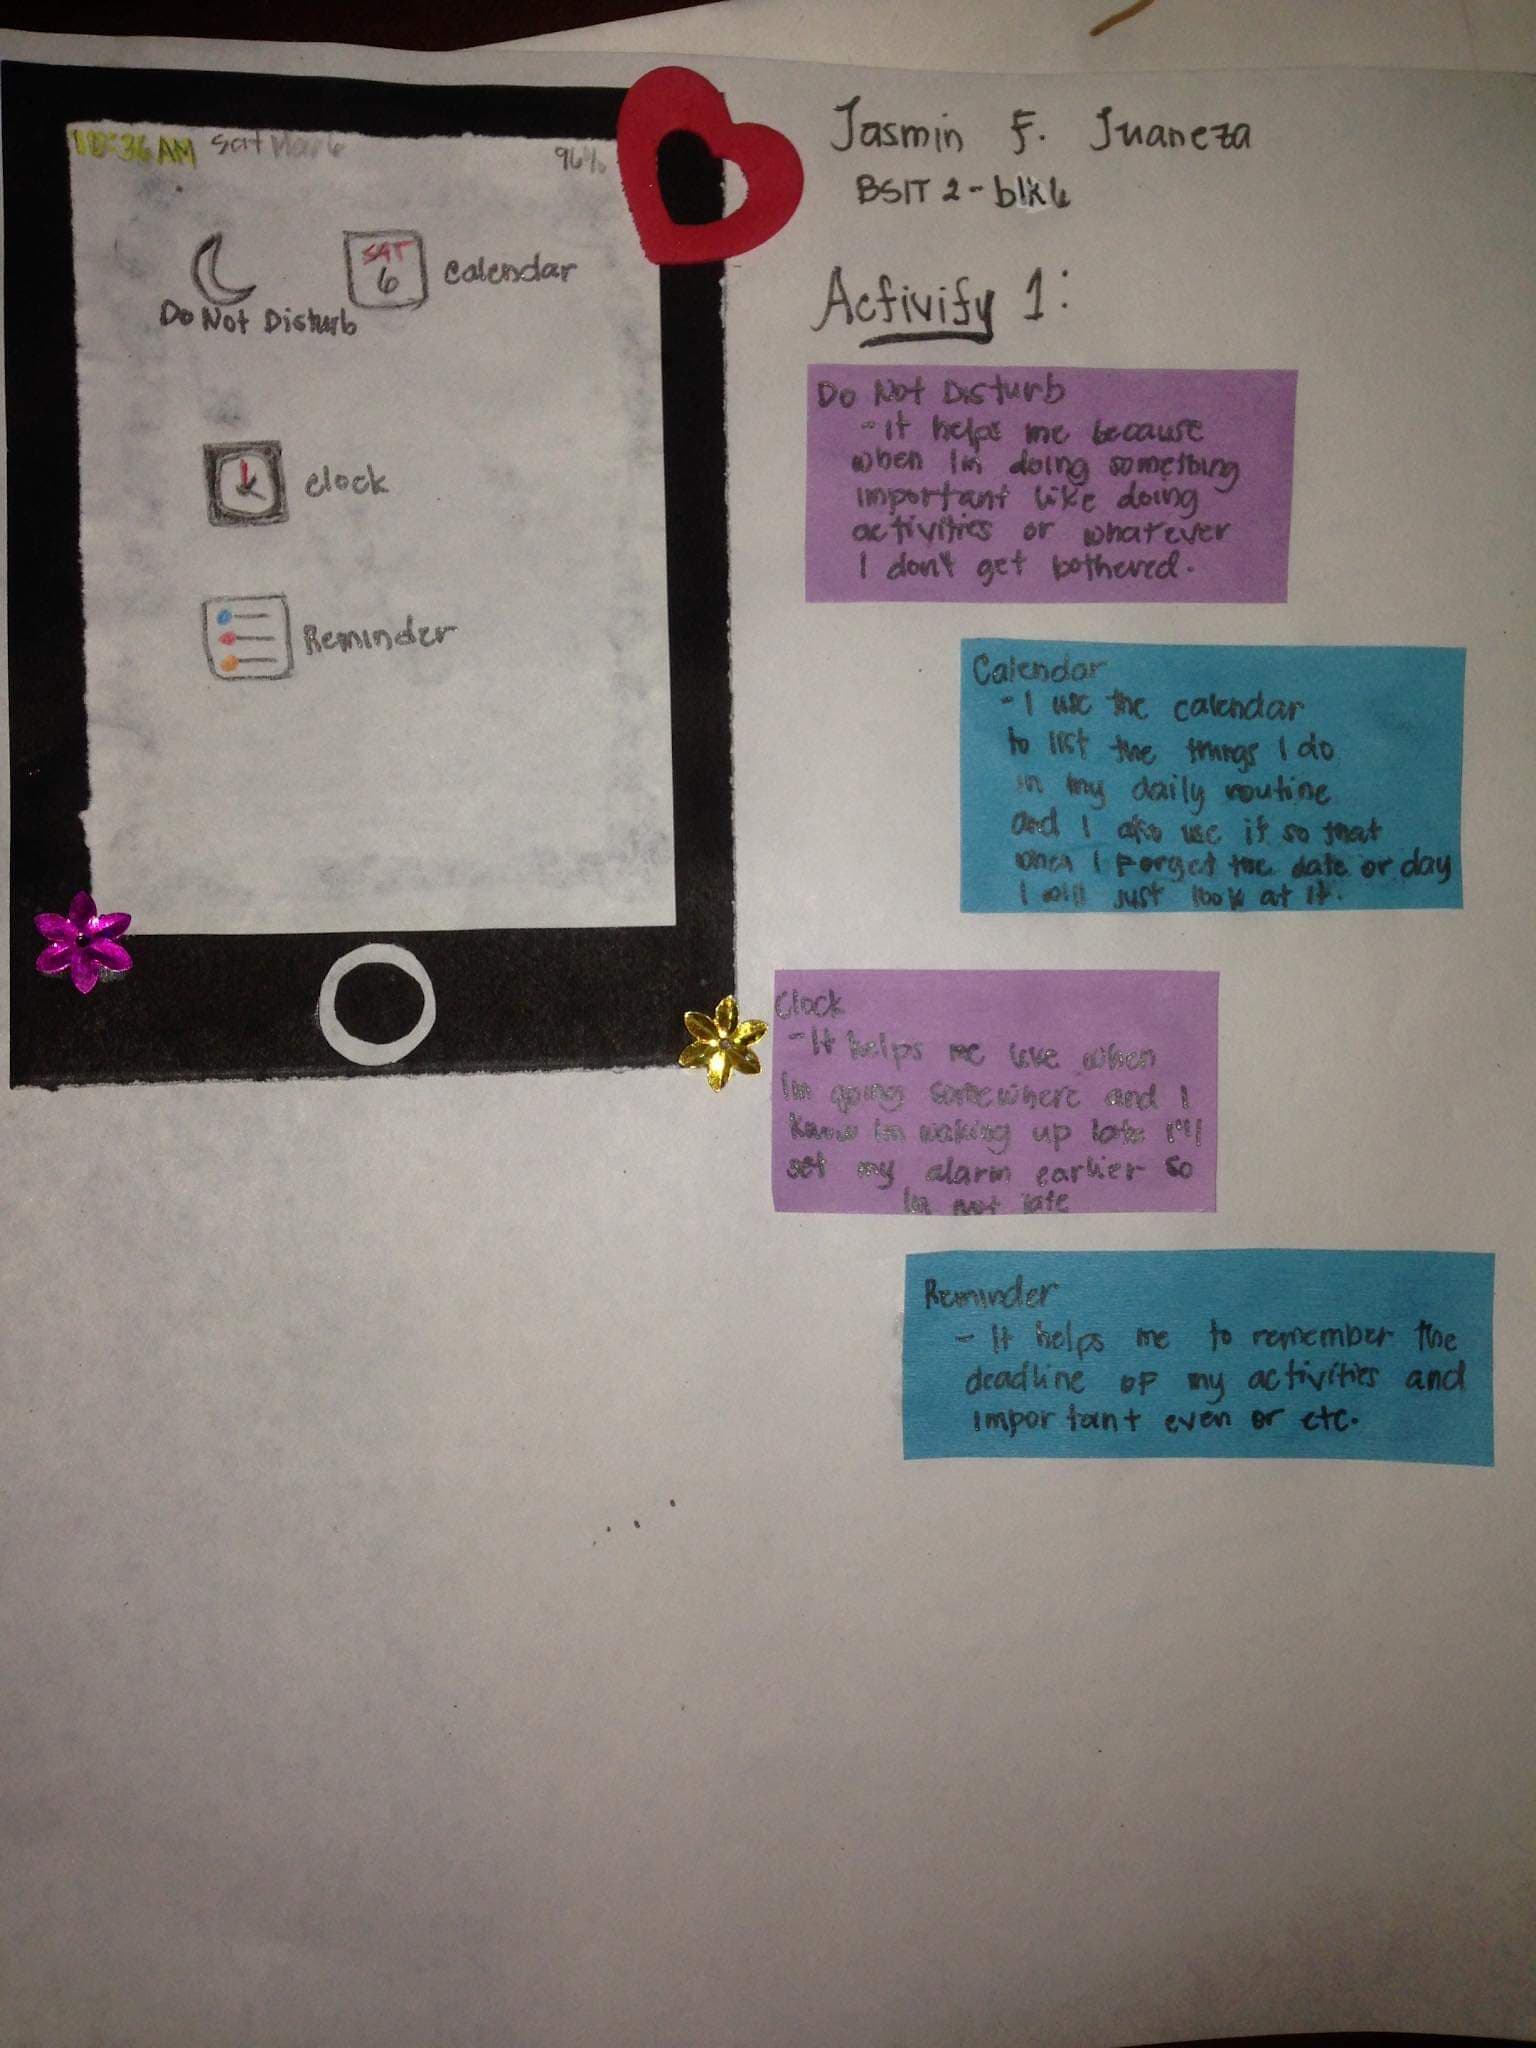 10:36 AM Sat Mar 6 96%
Do Not Disturb
SAT
6
Calendar
Clock
Reminder
Jasmin F. Juaneza
BSIT 2 - blk 6
Activity 1:
Do Not Disturb
- It helps me because
when Im doing something
important like doing
activities or whatever
I don't get bothered.
Calendar
- I use the calendar
to list the things I do
in my daily routine
and I also use it so that
when I forget the date or day
I will just look at it.
Clock
- It helps me like when
Im going somewhere and I
know Im waking up late I'll
set my alarm earlier so
Im not late
Reminder
- It helps me to remember the
deadline of my activities and
important even or etc.